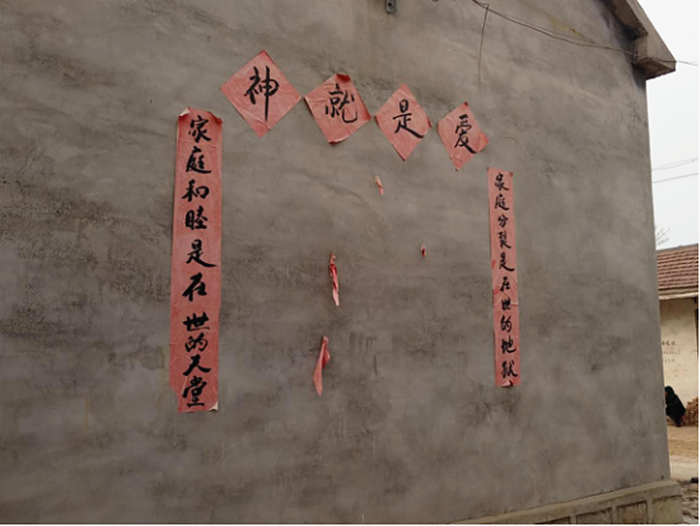 神就是爱
家庭和睦是在世的天堂
家庭分裂是在世的地狱